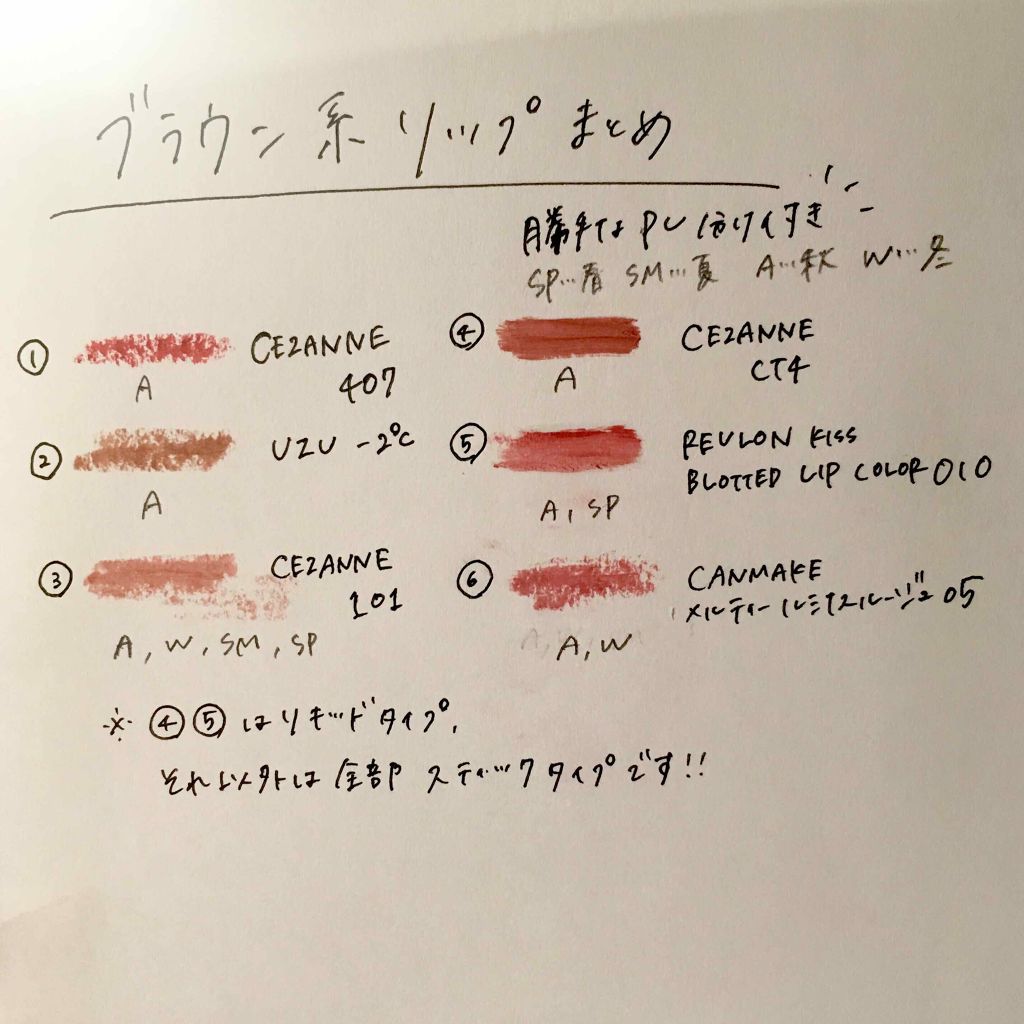 ブラウン系リップまとめ
勝手なPC分け付き
SP…春 SM…夏 A…秋 W…冬
① CEZANNE
407
A
② UZU -2℃
A
③ CEZANNE
101
A, W, SM, SP
④ CEZANNE
CT4
A
⑤ REVLON KISS
BLOTTED LIP COLOR 010
A, SP
⑥ CANMAKE
メルティールミナスルージュ 05
A, W
※ ④⑤はリキッドタイプ,
それ以外は全部スティックタイプです!!